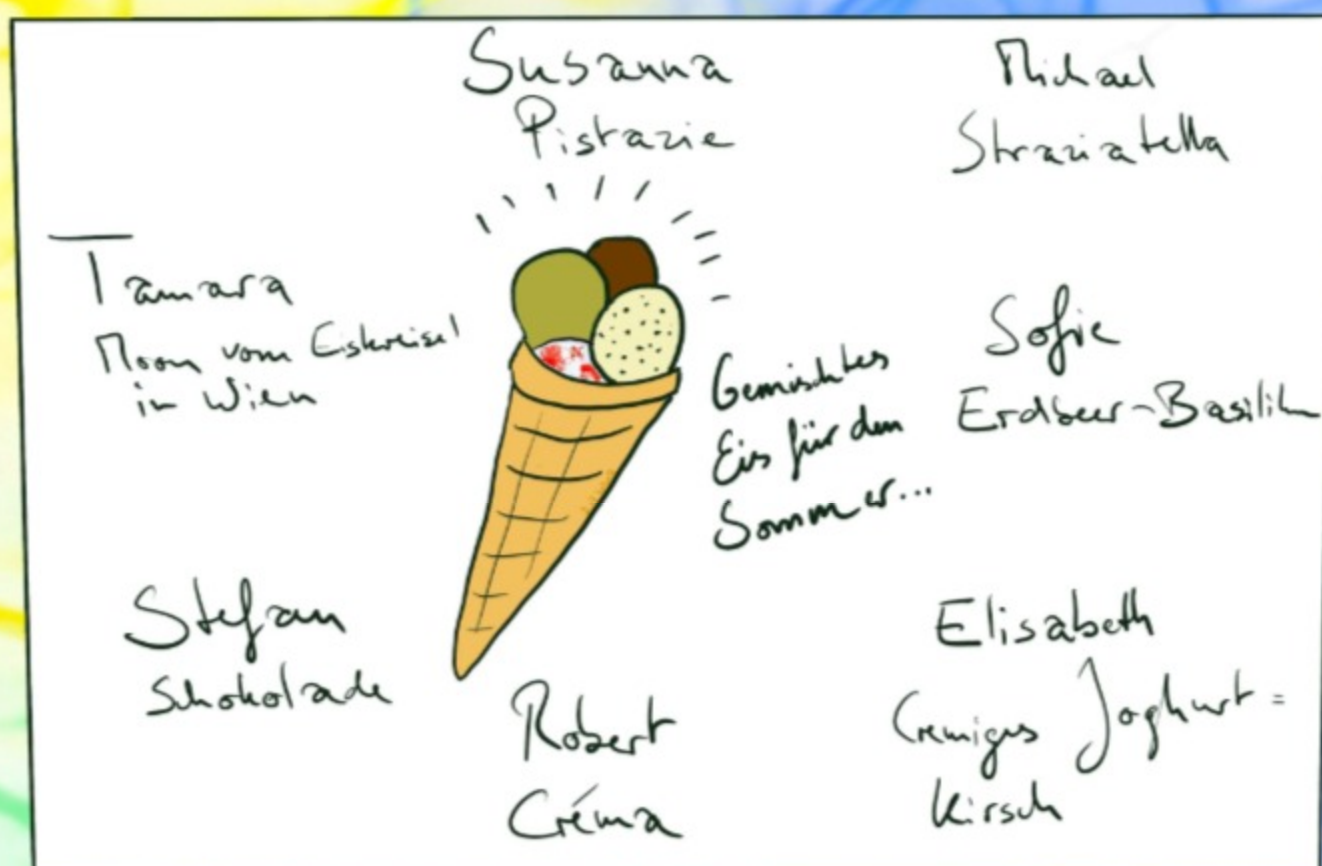 Susanna
Pistazie
Michael
Straziatella
Tamara
Moon vom Eiskreisel
in Wien
Gemischtes
Eis für den
Sommer...
Sofie
Erdbeer-Basilik
Stefan
Schokolade
Robert
Créma
Elisabeth
Cremiges Joghurt=
Kirsch